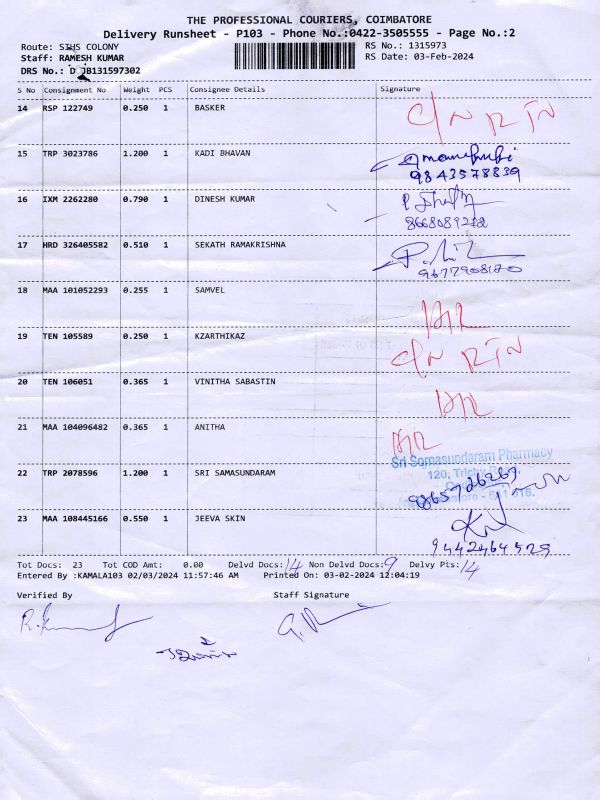 THE PROFESSIONAL COURIERS, COIMBATORE
Delivery Runsheet - P103 - Phone No.:0422-3505555 - Page No.:2
Route: SIHS COLONY
RS No.: 1315973
Staff: RAMESH KUMAR
RS Date: 03-Feb-2024
DRS No.: D JB131597302
S No Consignment No Weight PCS Consignee Details Signature
14 RSP 122749 0.250 1 BASKER C/N RTN
15 TRP 3023786 1.200 1 KADI BHAVAN
9843578839
16 IXM 2262280 0.790 1 DINESH KUMAR
17 HRD 326405582 0.510 1 SEKATH RAMAKRISHNA
9677908170
18 MAA 101052293 0.255 1 SAMVEL
19 TEN 105589 0.250 1 KZARTHIKAZ C/N RTN
20 TEN 106051 0.365 1 VINITHA SABASTIN
21 MAA 104096482 0.365 1 ANITHA
Sri Somasundaram Pharmacy
120, Trichy
22 TRP 2078596 1.200 1 SRI SAMASUNDARAM
9865726269
23 MAA 108445166 0.550 1 JEEVA SKIN
9442464529
Tot Docs: 23 Tot COD Amt: 0.00 Delvd Docs: 14 Non Delvd Docs: 9 Delvy Pts: 14
Entered By :KAMALA103 02/03/2024 11:57:46 AM Printed On: 03-02-2024 12:04:19
Verified By Staff Signature